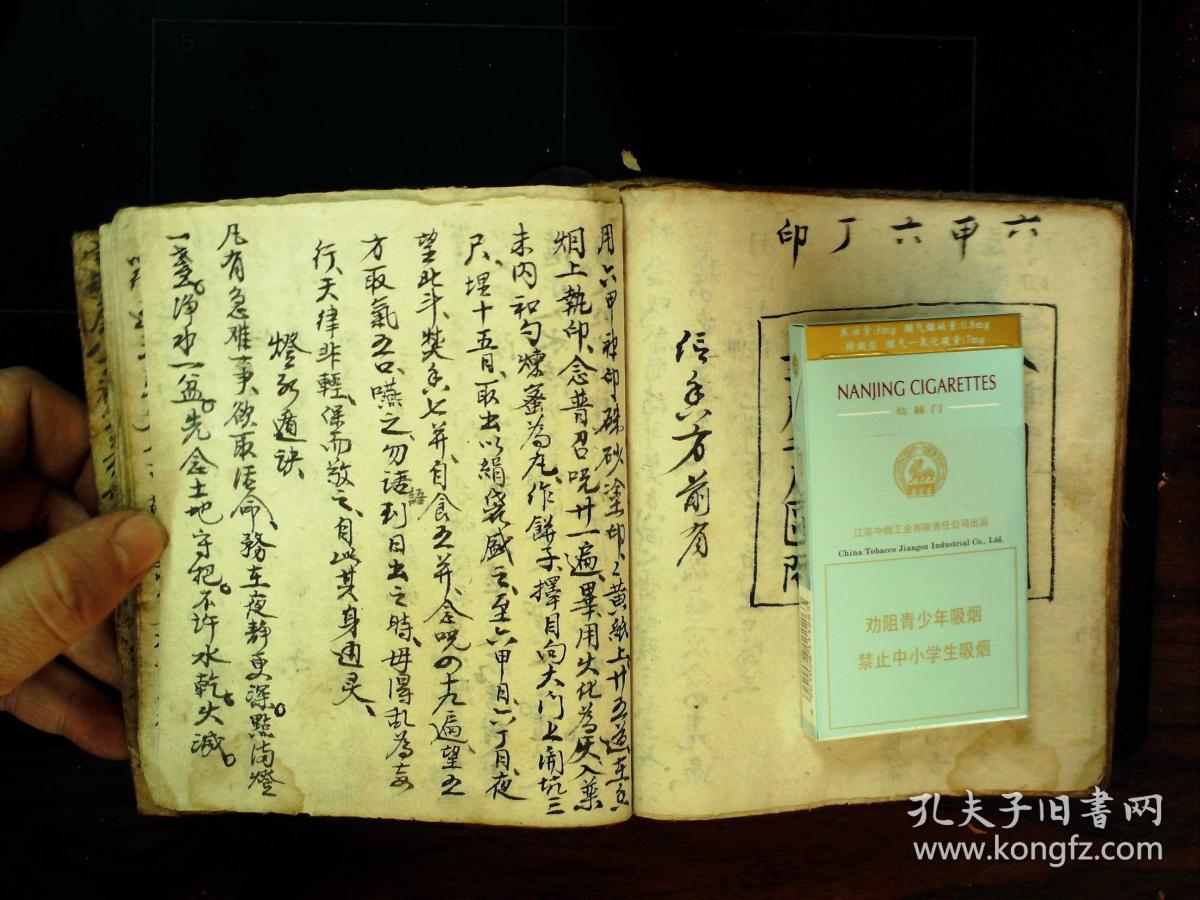 六甲六丁印
信香方前有
用六甲神印硃砂塗印、黃紙上廿五道在香
烟上執印、念普召咒廿一遍、畢用火化為灰入藥
末內和勻煉蜜為丸、作餅子擇日向大門上開坑三
尺、埋十五日、取出以絹袋盛之、至六甲日、六丁日、夜
望北斗、焚香七并、自食五并、念咒四十九遍、望五
方取氣五口、嚥之、勿語到日出之時、毋得乱為妄
語
行、天律非輕、保而敬之、自此其身通灵、
燈水遁訣、
凡有急难事、欲取活命、務在夜静更深。點油燈
一盞。淨水一盆。先念土地守把。不許水乾。火滅。
焦油量:8mg 烟气烟碱量:0.8mg
烤烟型 烟气一氧化碳量:7mg
NANJING CIGARETTES
炫赫门
江苏中烟工业有限责任公司出品
China Tobacco Jiangsu Industrial Co., Ltd.
劝阻青少年吸烟
禁止中小学生吸烟
A5
孔夫子旧书网
www.kongfz.com